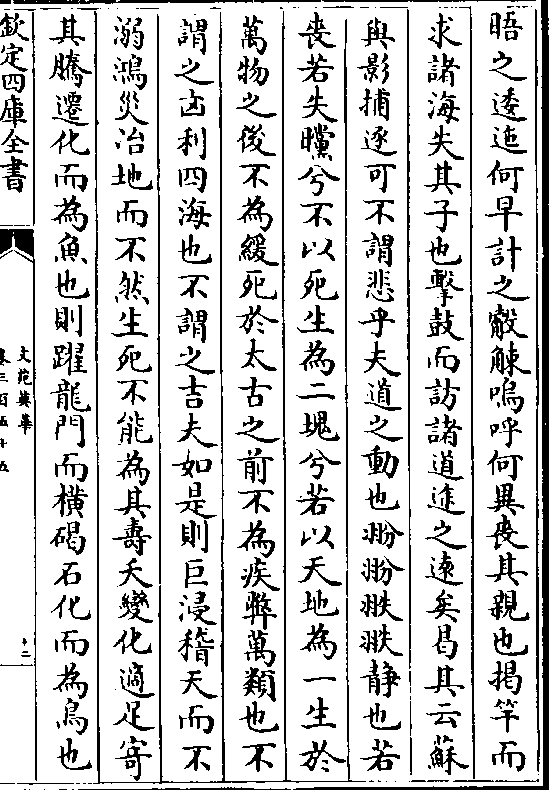 晤之逶迤何早計之觳觫嗚呼何異喪其親也揭竿而
求諸海失其子也擊鼓而訪諸道逺之逺矣曷其云蘇
與影捕逐可不謂悲乎夫道之動也翂翂翐翐静也若
喪若失曭兮不以死生為二塊兮若以天地為一生於
萬物之後不為緩死於太古之前不為疾弊萬類也不
謂之凶利四海也不謂之吉夫如是則巨浸稽天而不
溺鴻災冶地而不然生死不能為其壽夭變化適足寄
其騰遷化而為魚也則躍龍門而横碣石化而為鳥也
欽定四庫全書
文苑英華
卷三百五十五
十二